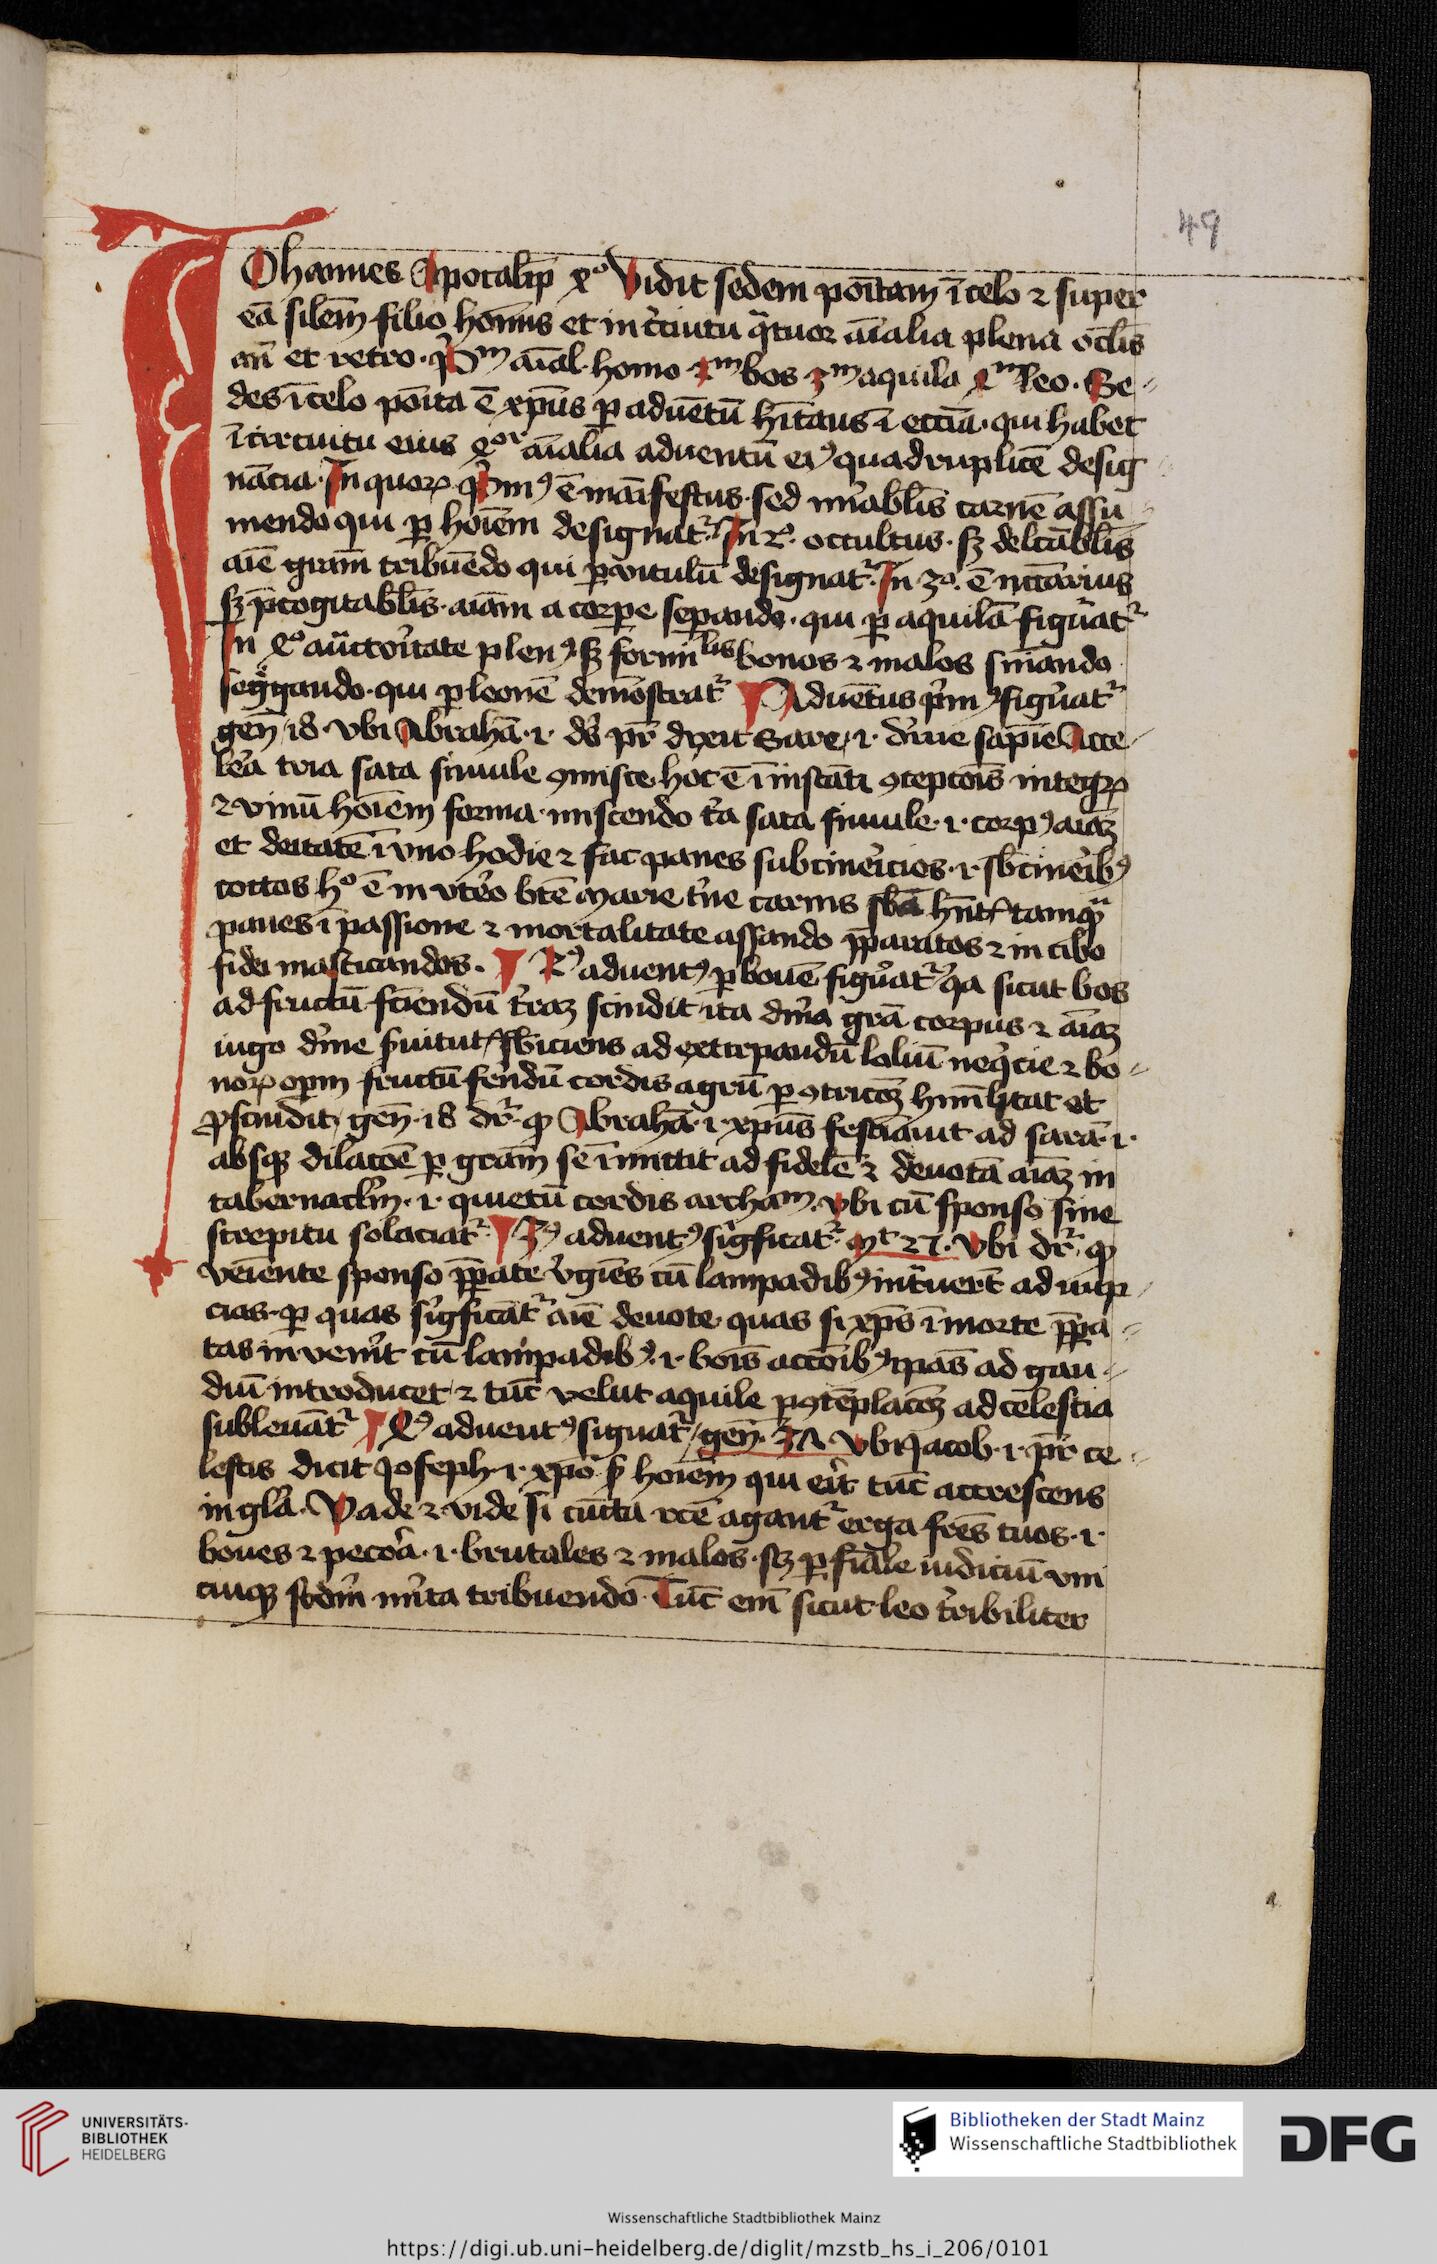 49
IOhannes Apocalip̄ 4° Vidit sedem po̅itam i̅ celo ⁊ super
ea̅ sile̅m filio ho̅nis et in c̓cuitu q̓tuor a̅i̅alia plena oc̅lis
an̅ et retro · p̓ᵐ a̅ia̅l · homo · 2ᵐ bos 3ᵐ aquila 4ᵐ leo · Se-
des i̅ celo po̅ita e̅ xp̅us ꝑ adue̅tu̅ h̅itans i̅ ecc̅ia · qui habet
i̅ circuitu eius 4ᵒʳ a̅i̅alia aduentu̅ eiꝰ quadruplice̅ desig
na̅cia · In quoꝝ p̓mꝰ e̅ ma̅ifestus · sed mi̓abl̅is carne̅ assu-
mendo qui ꝑ ho̅i̅em designat᷑ · In 2° · occultus · sꝫ delc̅abl̅is
a̅ie̅ gr̅am tribue̅do qui ꝑ vitulu̅ designat᷑ · In 3° · e̅ nc̅c̅arius
sꝫ p̅cogitabl̅is · a̅ia̅m a corpe sepando · qui ꝑ aquila̅ figurat᷑
In 4° auctoritate plenꝰ sꝫ formi̅lis bonos ⁊ malos sm̅ando
seg̓gando · qui ꝑ leone̅ demo̅strat᷑ ¶ Adue̅tus p̓mꝰ figurat᷑
gen̅ 18 · vbi Abraha̅ · i · de̓ p̅r dixit Sare · i · di̓ne sapi̅e Acce-
lera tria sata simule ꝯmisce hoc e̅ i̅ insta̅ti ꝯcepto̅is integꝝ
⁊ vinu̅ ho̅i̅em forma · miscendo t̓a sata simule · i · corpꝰ a̅ia̅ꝫ
et deitate̅ i̅ vno hodie ⁊ fac panes subcinericios · i · sb̅cineribꝰ
coctos h° e̅ in vtero bt̅e Marie t̓ne carnis sb̅a h̅nt᷑ tamq̓
panes i̅ passione ⁊ mortalitate assando p̅paratos ⁊ in cibo
fidei masticandos · ¶ 2ꝰ aduentꝰ ꝑ boue̅ figurat᷑ q̓a sicut bos
ad fructu̅ fc̅iendu̅ t̓raꝫ scindit ita di̓na gr̅a corpus ⁊ a̅ia̅ꝫ
iugo di̓ne s̓uitut᷑ sb̅iciens ad extirpandu̅ loliu̅ neq̓cie ⁊ bo-
noꝝ op̅ꝫm fructu̅ fe̓ndu̅ cordis agru̅ ꝑ ꝯtric̅o̅ꝫ hu̅il̅itat et
ꝓscindit gen̅ · 18 dr̅ · ꝙ Abraha̅ · i · xp̅us festi̅auit ad sara̅ · i ·
absqꝫ dilac̅o̅e̅ ꝑ gr̅am se i̅mittit ad fidele̅ ⁊ deuota̅ a̅ia̅ꝫ in
tabernacl̅m · i · quietu̅ cordis archaᵐ · vbi cu̅ sponso sine
strepitu solaciat᷑ · ¶ 3ꝰ aduentꝰ sig̓ficat᷑ · Mᵗ 27 · Vbi dr̅ · ꝙ
veniente sponso p̅pa̅te v̓gi̅es cu̅ lampadibꝰ int̓uer̅t ad nup-
cias · ꝑ quas sig̓fica̅t᷑ a̅ie̅ deuote quas si xp̅s i̅ morte p̅pa-
tas inuen̓it cu̅ lampadibꝰ · i · bo̅is acco̅ibꝰ ip̅as ad gau-
diu̅ introducet ⁊ tu̅c velut aquile ꝑ ꝯte̅plac̅o̅ꝫ ad celestia
subleua̅t᷑ ¶ 4ꝰ aduentꝰ signat᷑ gen̅ · 37 · Vbi Jacob · i · p̅r ce-
lestis dicit Joseph · i · xp̅o s̅ ho̅i̅em qui erit tu̅c accrescens
in gl̅a · Vade ⁊ vide si cu̅cta rc̅e agant᷑ erga fr̅es tuos · i ·
boues ⁊ pecora · i · brutales ⁊ malos · sꝫ ꝑ fi̅ale iudiciu̅ vni
cuiqꝫ scd̅m mi̓ta tribuendo · Tu̅c em̅ sicut leo t̓ribiliter
UNIVERSITÄTS-
BIBLIOTHEK
HEIDELBERG
Bibliotheken der Stadt Mainz
Wissenschaftliche Stadtbibliothek
DFG
Wissenschaftliche Stadtbibliothek Mainz
https://digi.ub.uni-heidelberg.de/diglit/mzstb_hs_i_206/0101